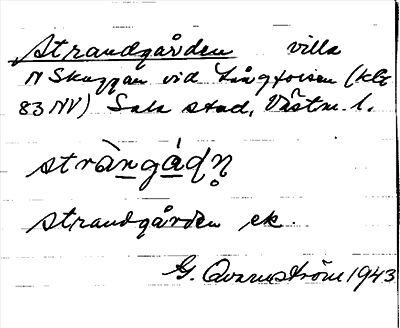 Strandgården villa
N Skuggan vid Långforsen (kbl
83 NV) Sala stad, Västm. l.
stràngád̥n̥
strandgården ek.
G. Qvarnström 1943